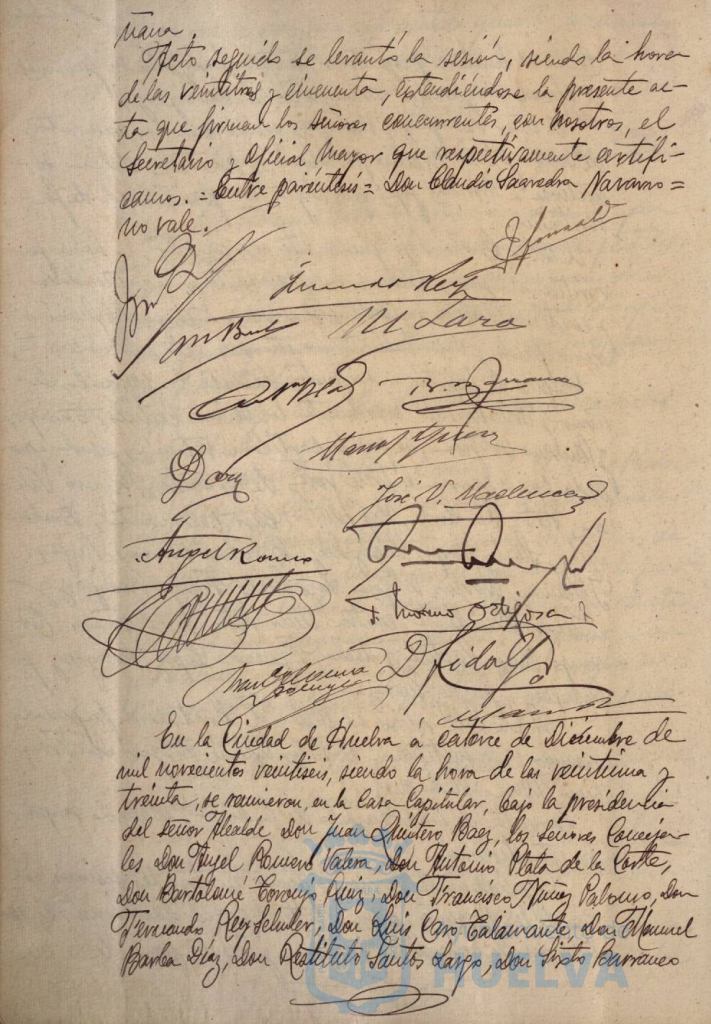 ñana.
Acto seguido se levantó la sesión, siendo la hora
de las veintitrés y cincuenta, extendiéndose la presente ac-
ta que firman los señores concurrentes, con nosotros, el
Secretario y Oficial Mayor que respectivamente certifi-
camos. = Entre paréntesis = Don Claudio Saavedra Navarro =
no vale.
Fernando Rey
M Lara
José V.
Angel Romero
Ortigosa
D Fidalgo
En la Ciudad de Huelva á catorce de Diciembre de
mil novecientos veintiseis, siendo la hora de las veintiuna y
treinta, se reunieron, en la Casa Capitular, bajo la presidencia
del señor Alcalde Don Juan Quintero Baez, los señores Conceja-
les Don Angel Romero Valera, Don Antonio Plata de la Corte,
Don Bartolomé Toronjo Ruiz, Don Francisco Nuñez Palomo, Don
Fernando Rey Schuler, Don Luis Caro Talamante, Don Manuel
Barba Díaz, Don Restituto Santos Largo, Don Sixto Barranco
HUELVA